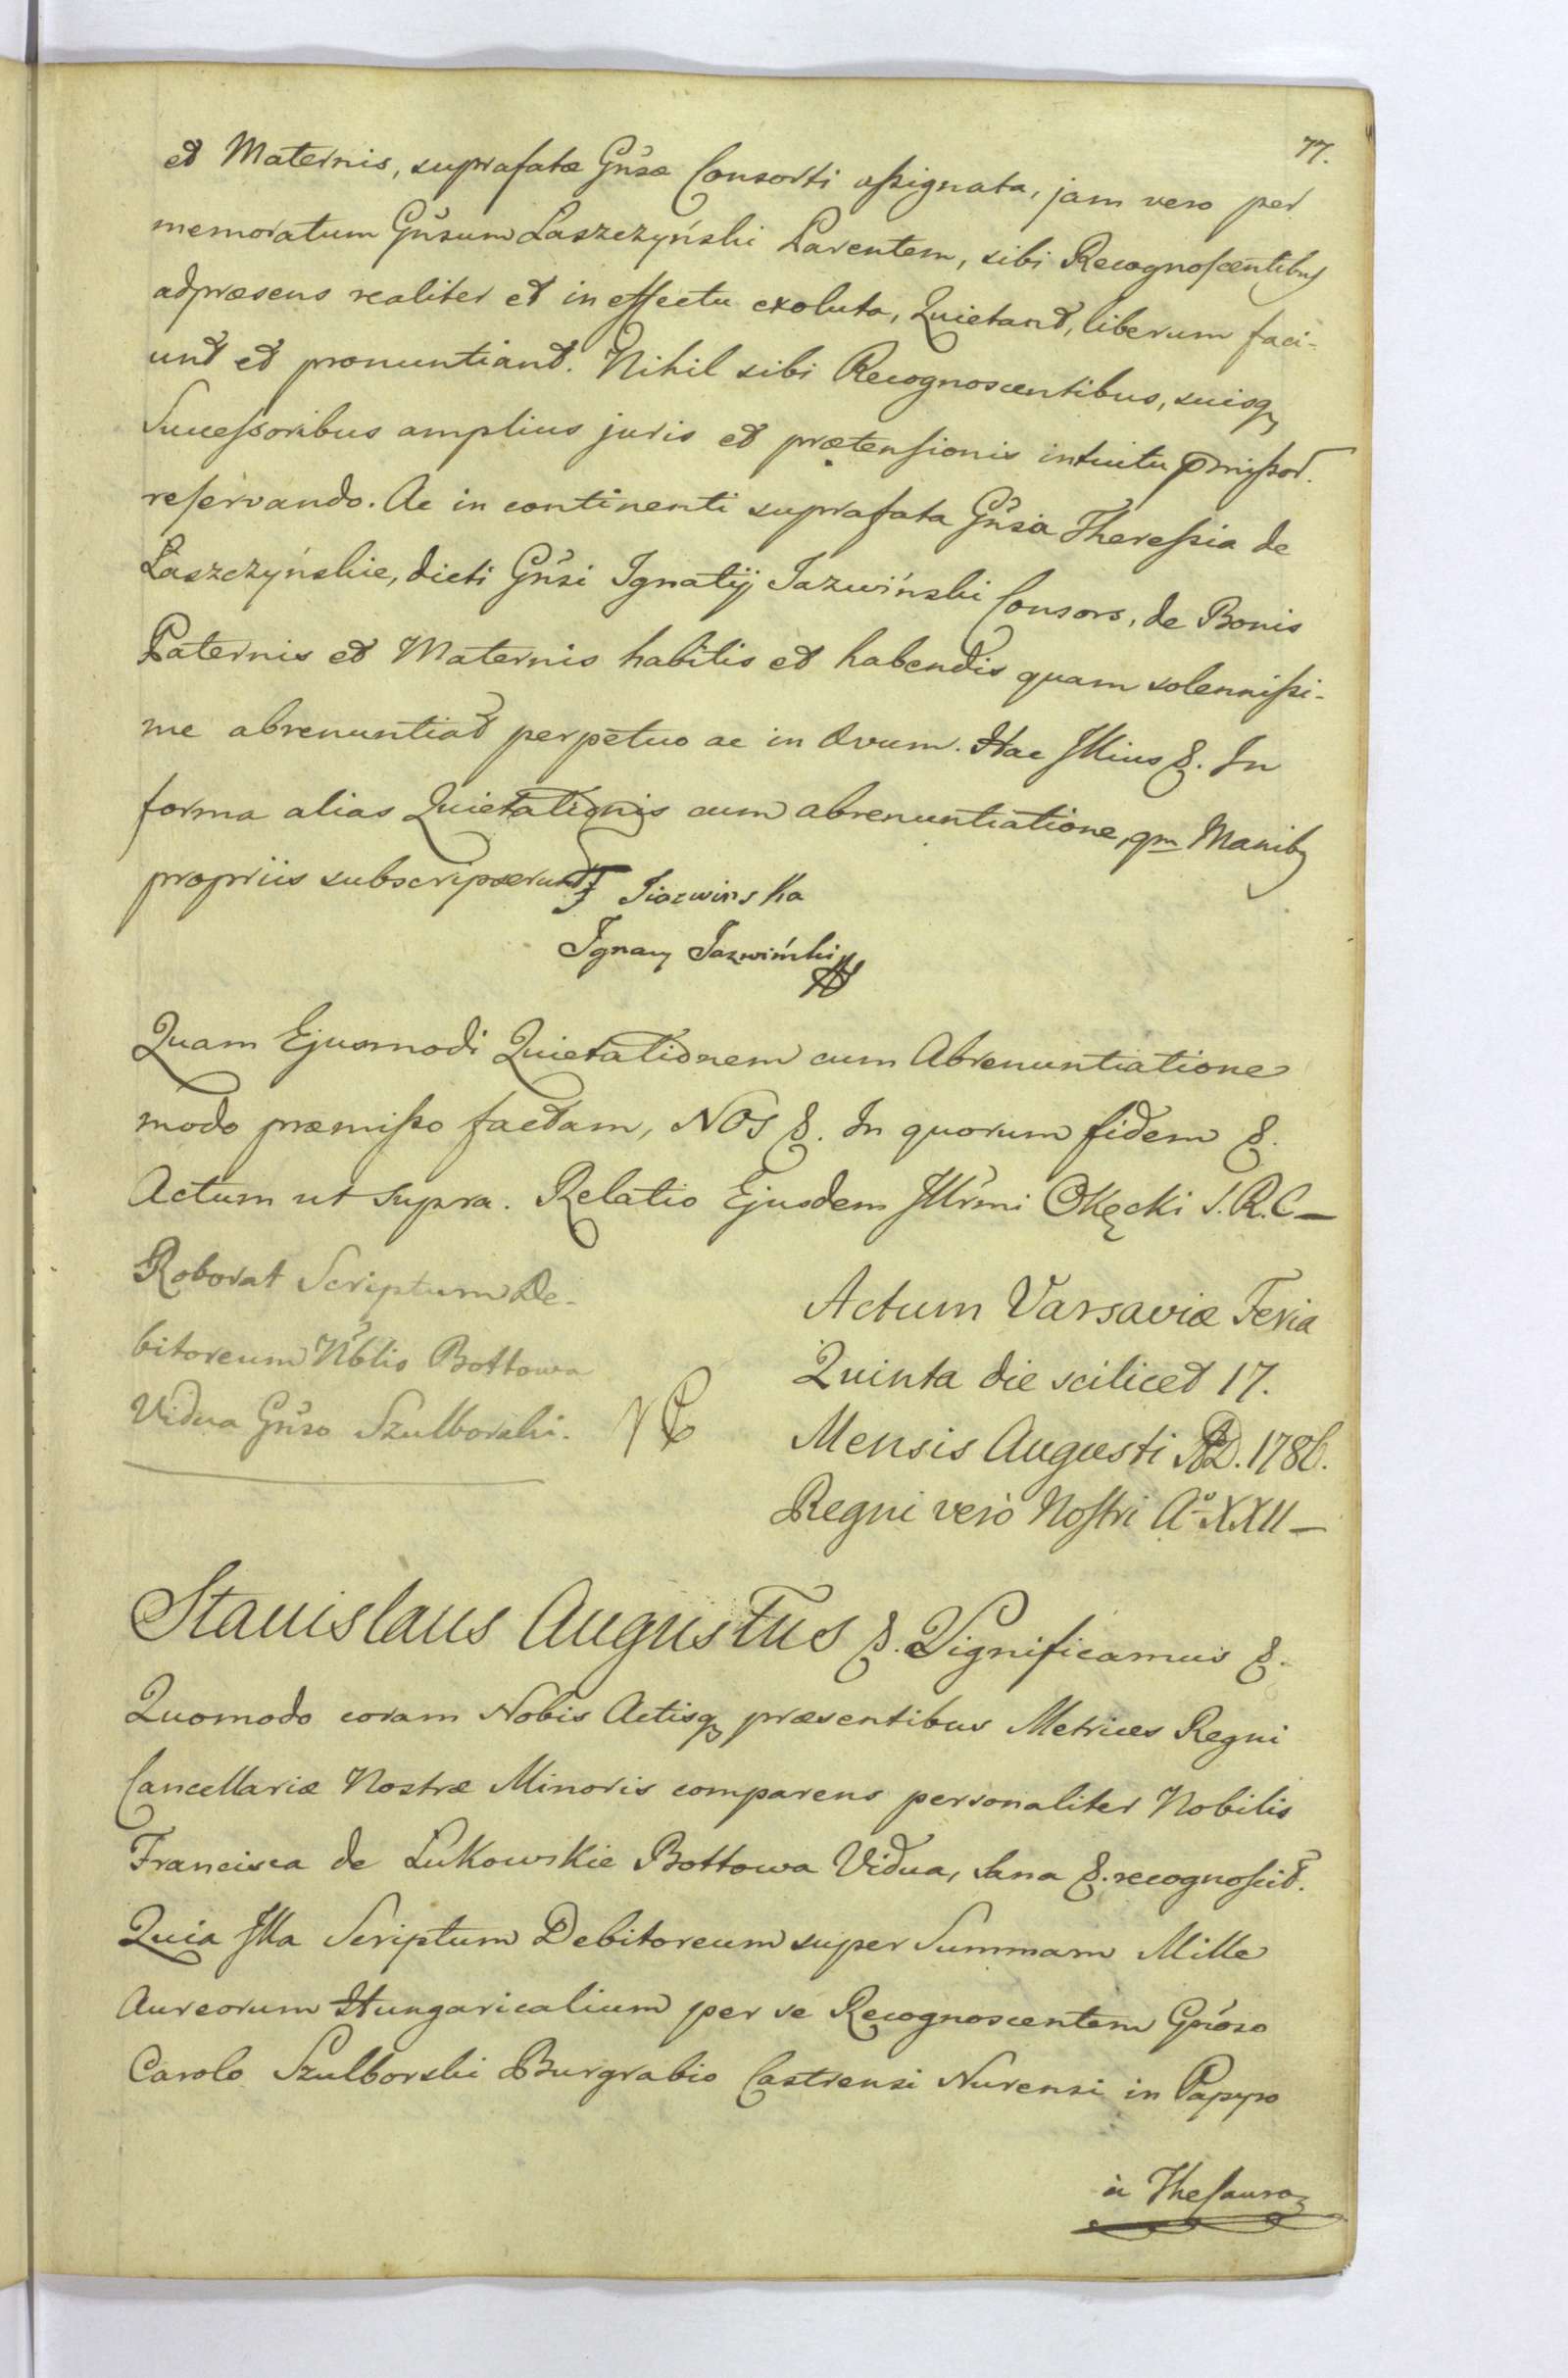 77.
et Maternis, suprafatæ Gñsæ Consorti assignata, jam vero per
memoratum Gñsum Łaszczyński Parentem, sibi Recognoscentibus
adpræsens realiter et in effectu exoluta, Quietant, liberum faci-
unt et pronuntiant. Nihil sibi Recognoscentibus, suisq
Successoribus amplius juris et prætensionis intuitu pmissor.
reservando. Ac in continenti suprafata Gñsa Theressia de
Łaszczyńskie, dicti Gñsi Ignatij Jazwiński Consors, de Bonis
Paternis et Maternis habitis et habendis quam solennissi-
me abrenuntiat perpetuo ac in Ævum. Hac Illius &. In
forma alias Quietationis cum abrenuntiatione, qm Manib9
propriis subscripserunt T Jiazwinska
Ignacy Jazwiński
Quam Ejusmodi Quietationem cum Abrenuntiatione
modo præmisso factam, NOS &. In quorum fidem &.
Actum ut supra. Relatio Ejusdem Illrmi Okęcki S. R. C —
Roborat Scriptum De-
bitoreum Nblis Bottowa
Vidua Gñso Szulborski.
Actum Varsaviæ Feria
Quinta die scilicet 17.
Mensis Augusti AD. 1786.
Regni verò Nostri Aº XXII —
Stanislaus Augustus &. Significamus &.
Quomodo coram Nobis Actisq præsentibus Metrices Regni
Cancellariæ Nostræ Minoris comparens personaliter Nobilis
Francisca de Łukowskie Bottowa Vidua, sana &. recognoscit.
Quia Illa Scriptum Debitoreum super Summam Mille
Aureorum Hungaricalium per se Recognoscentem Gñoso
Carolo Szulborski Burgrabio Castrensi Nurensi in Papyro
à Thesauro